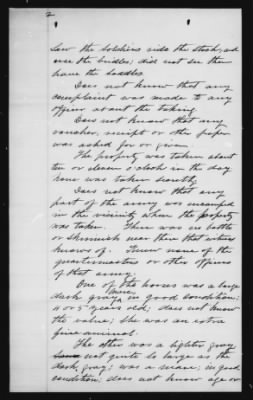 2
saw the soldiers ride the stock, and
use the bridles; did not see them
have the saddles.
Does not know that any
complaint was made to any
officer about the taking.
Does not know that any
voucher, receipt or other paper
was asked for or given.
The property was taken about
ten or eleven o'clock in the day
None was taken secretly
Does not know that any
part of the army was encamped
in the vicinity when the property
was taken. There was no battle
or skirmish near there that witness
knows of. Knew none of the
quartermasters or other officers
of that army.
One of the horses was a large
dark gray mare, in good condition;
4 or 5 years old; does not know
the value; she was an extra
fine animal.
The other was a lighter gray
not quite so large as the
dark gray; was a mare; in good
condition; does not know age or